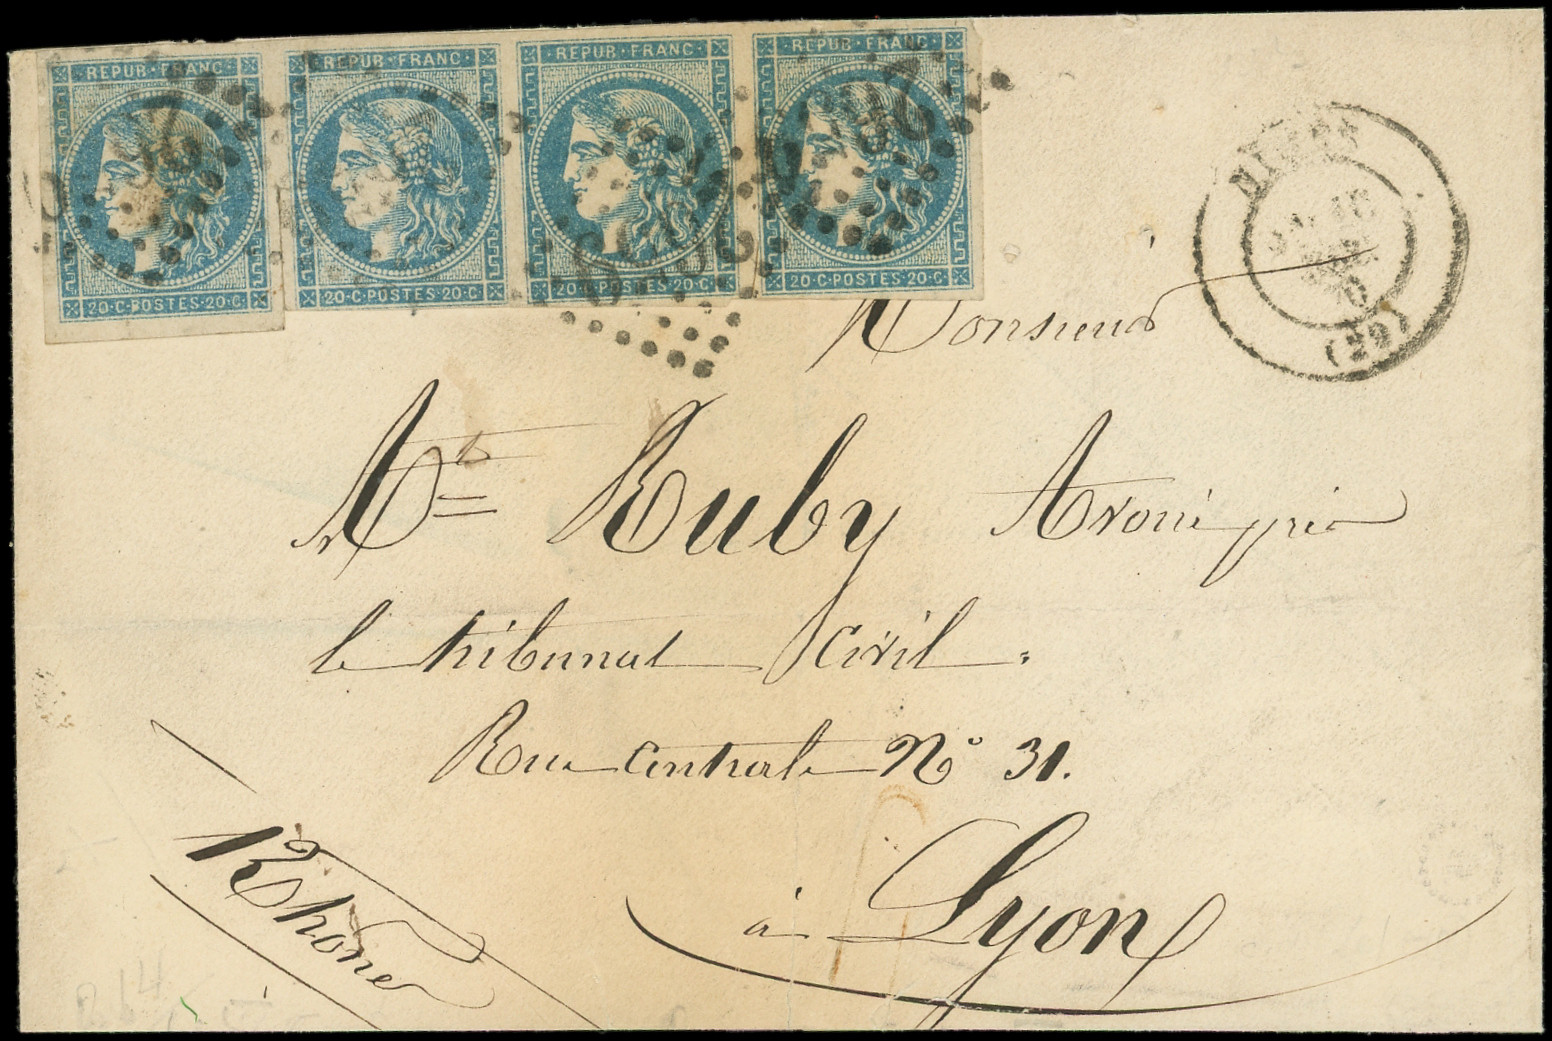 REPUB·FRANC REPUB·FRANC REPUB·FRANC REPUB·FRANC
20·C·POSTES·20·C 20·C·POSTES·20·C 20·C·POSTES·20·C 20·C·POSTES·20·C
NIMES
(29)
Monsieur
Mᵉ Ruby Avoué près
le tribunal Civil.
Rue Centrale N° 31.
à Lyon
Rhône